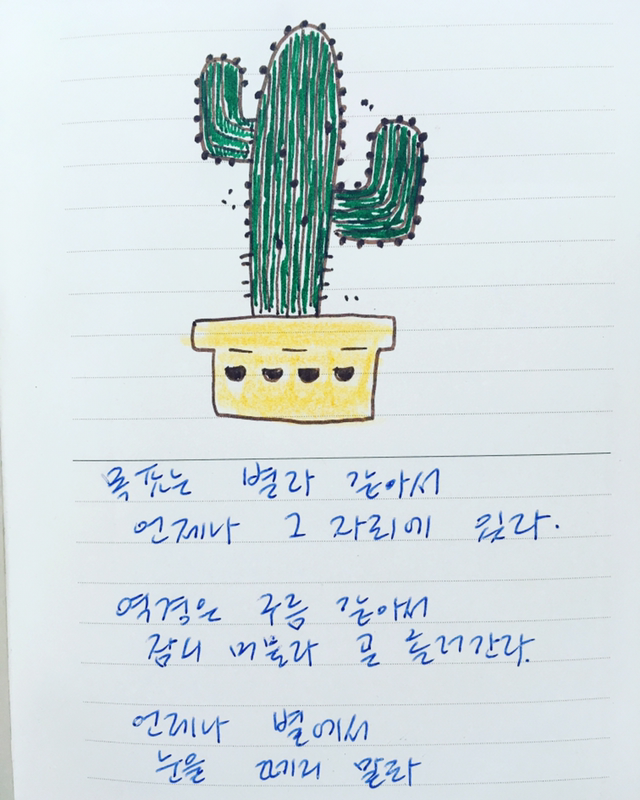 목표는 별과 같아서
언제나 그 자리에 있다.
역경은 구름 같아서
잠시 머물다 곧 흘러간다.
언제나 별에서
눈을 떼지 말라